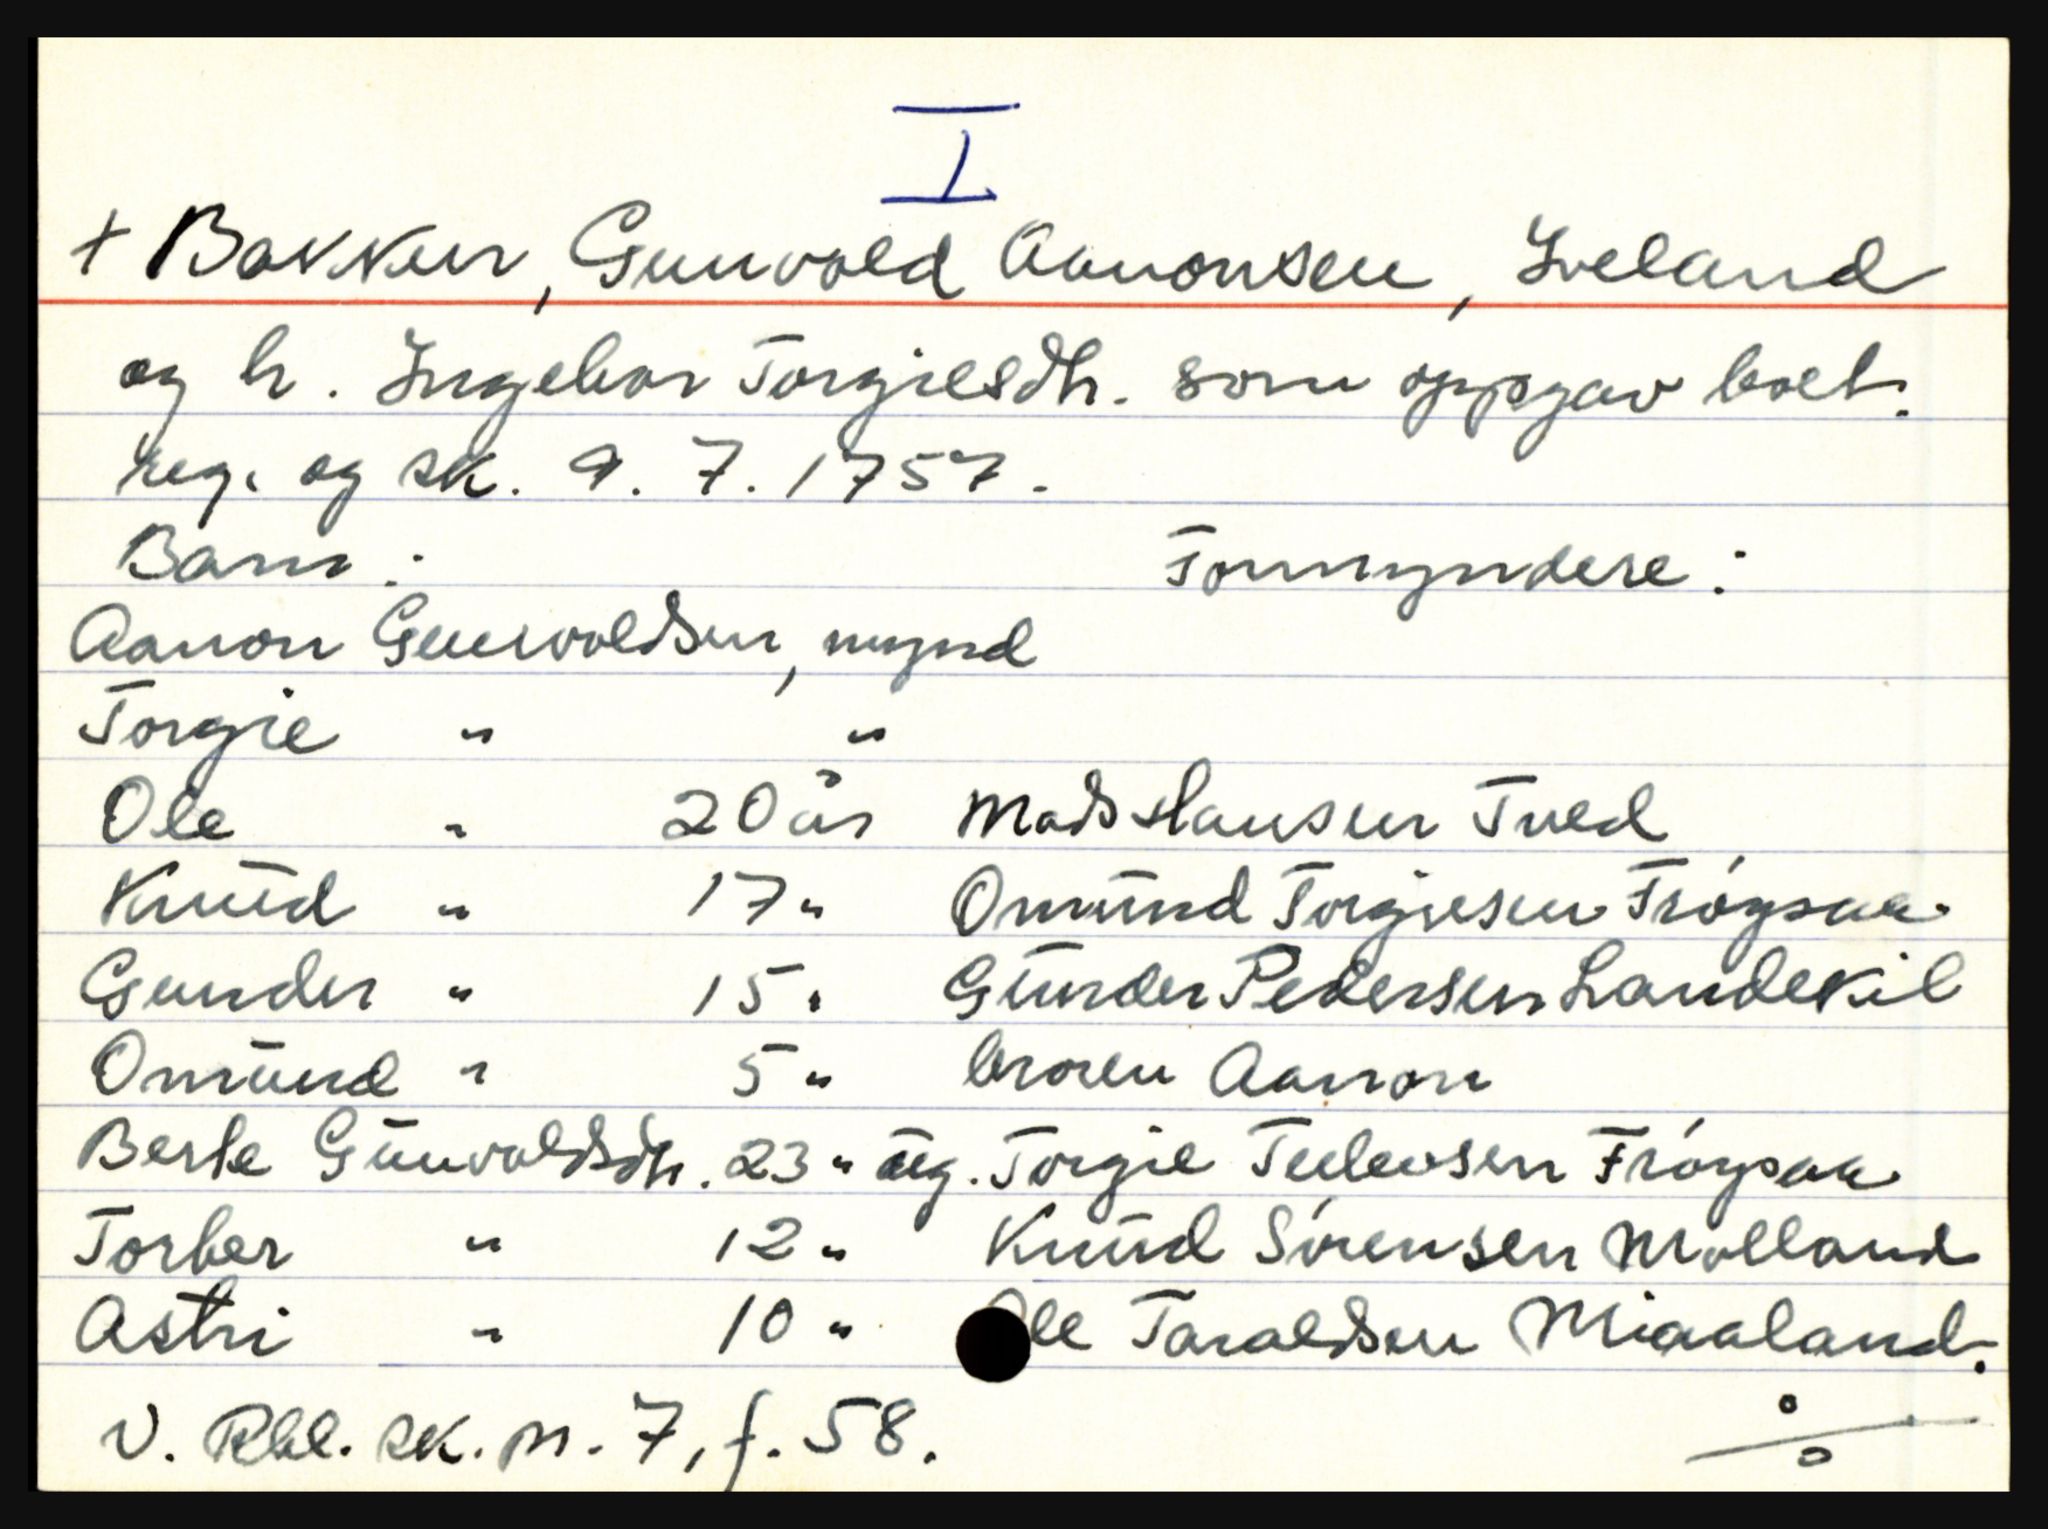 I
+ Bakken, Gunvald Aanonsen, Iveland
og h. Ingebor Torgiesdtr. som oppgav boet.
reg. og sk. 9. 7. 1757.
Barn: Formyndere:
Aanon Gunvoldsen, mynd
Torgie " "
Ole " 20 år Mads Hansen Tved
Knud " 17 " Omund Torgiesen Frøysaa
Gunder " 15 " Gunder Pedersen Landekil
Omund " 5 " broren Aanon
Berte Gunvoldsdtr. 23 " ug. Torgie Tellevsen Frøysaa
Torber " 12 " Knud Sørensen Molland
Astri " 10 " Ole Taraldsen Miaaland.
V. Rbl. sk. pr. 7, f. 58. %